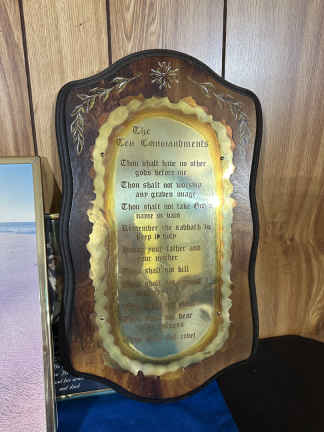 The
Ten Commandments
Thou shalt have no other
gods before me
Thou shalt not worship
any graven image
Thou shalt not take God's
name in vain
Remember the sabbath to
keep it holy
Honor your father and
your mother
Thou shalt not kill
Thou shalt not
shalt not
not bear
witness
not covet